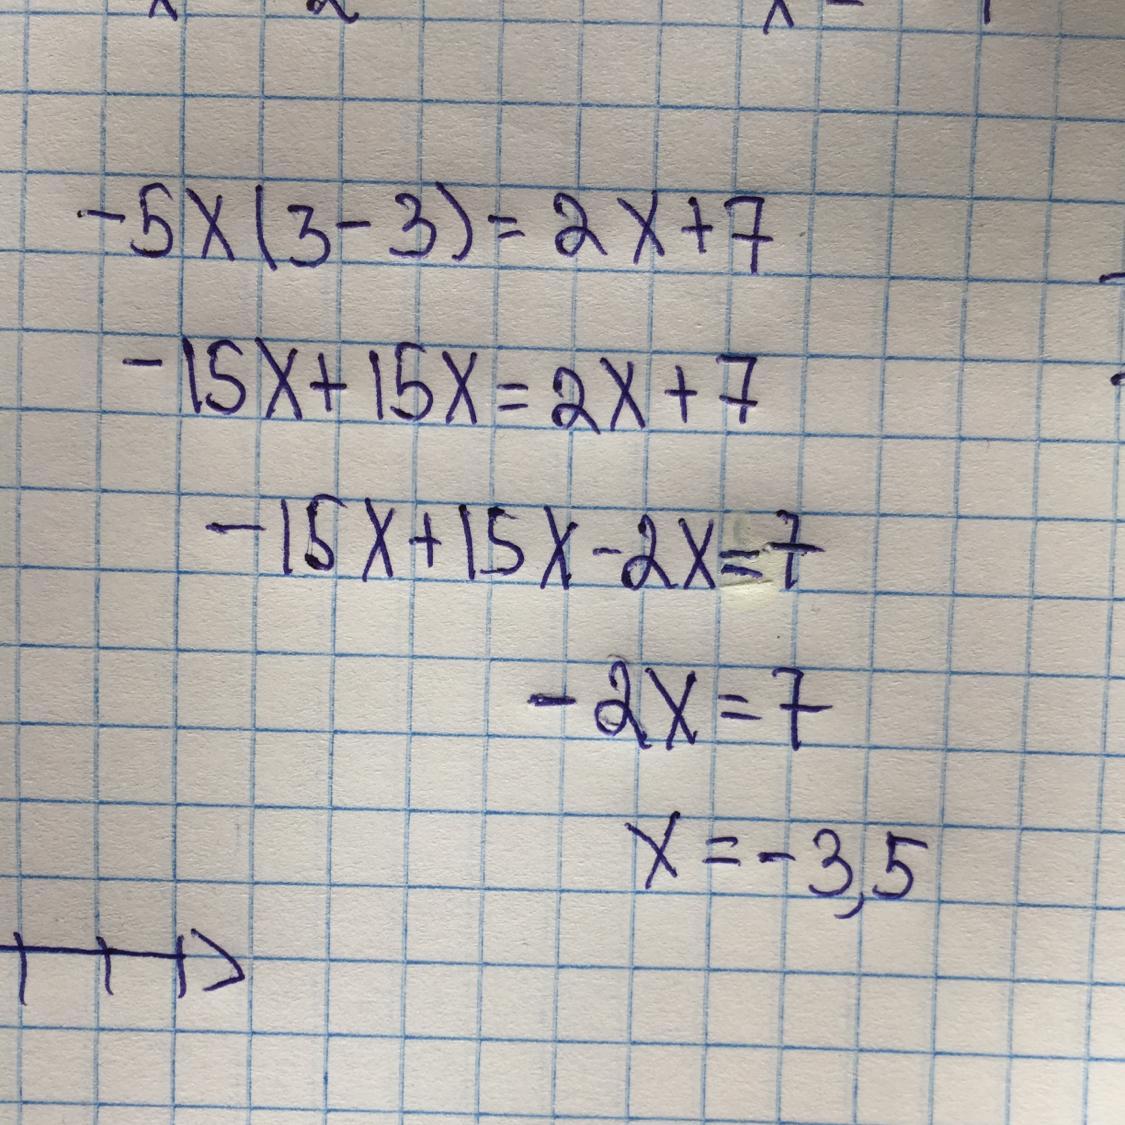 -5x(3-3)=2x+7
-15x+15x=2x+7
-15x+15x-2x=7
-2x=7
x=-3,5